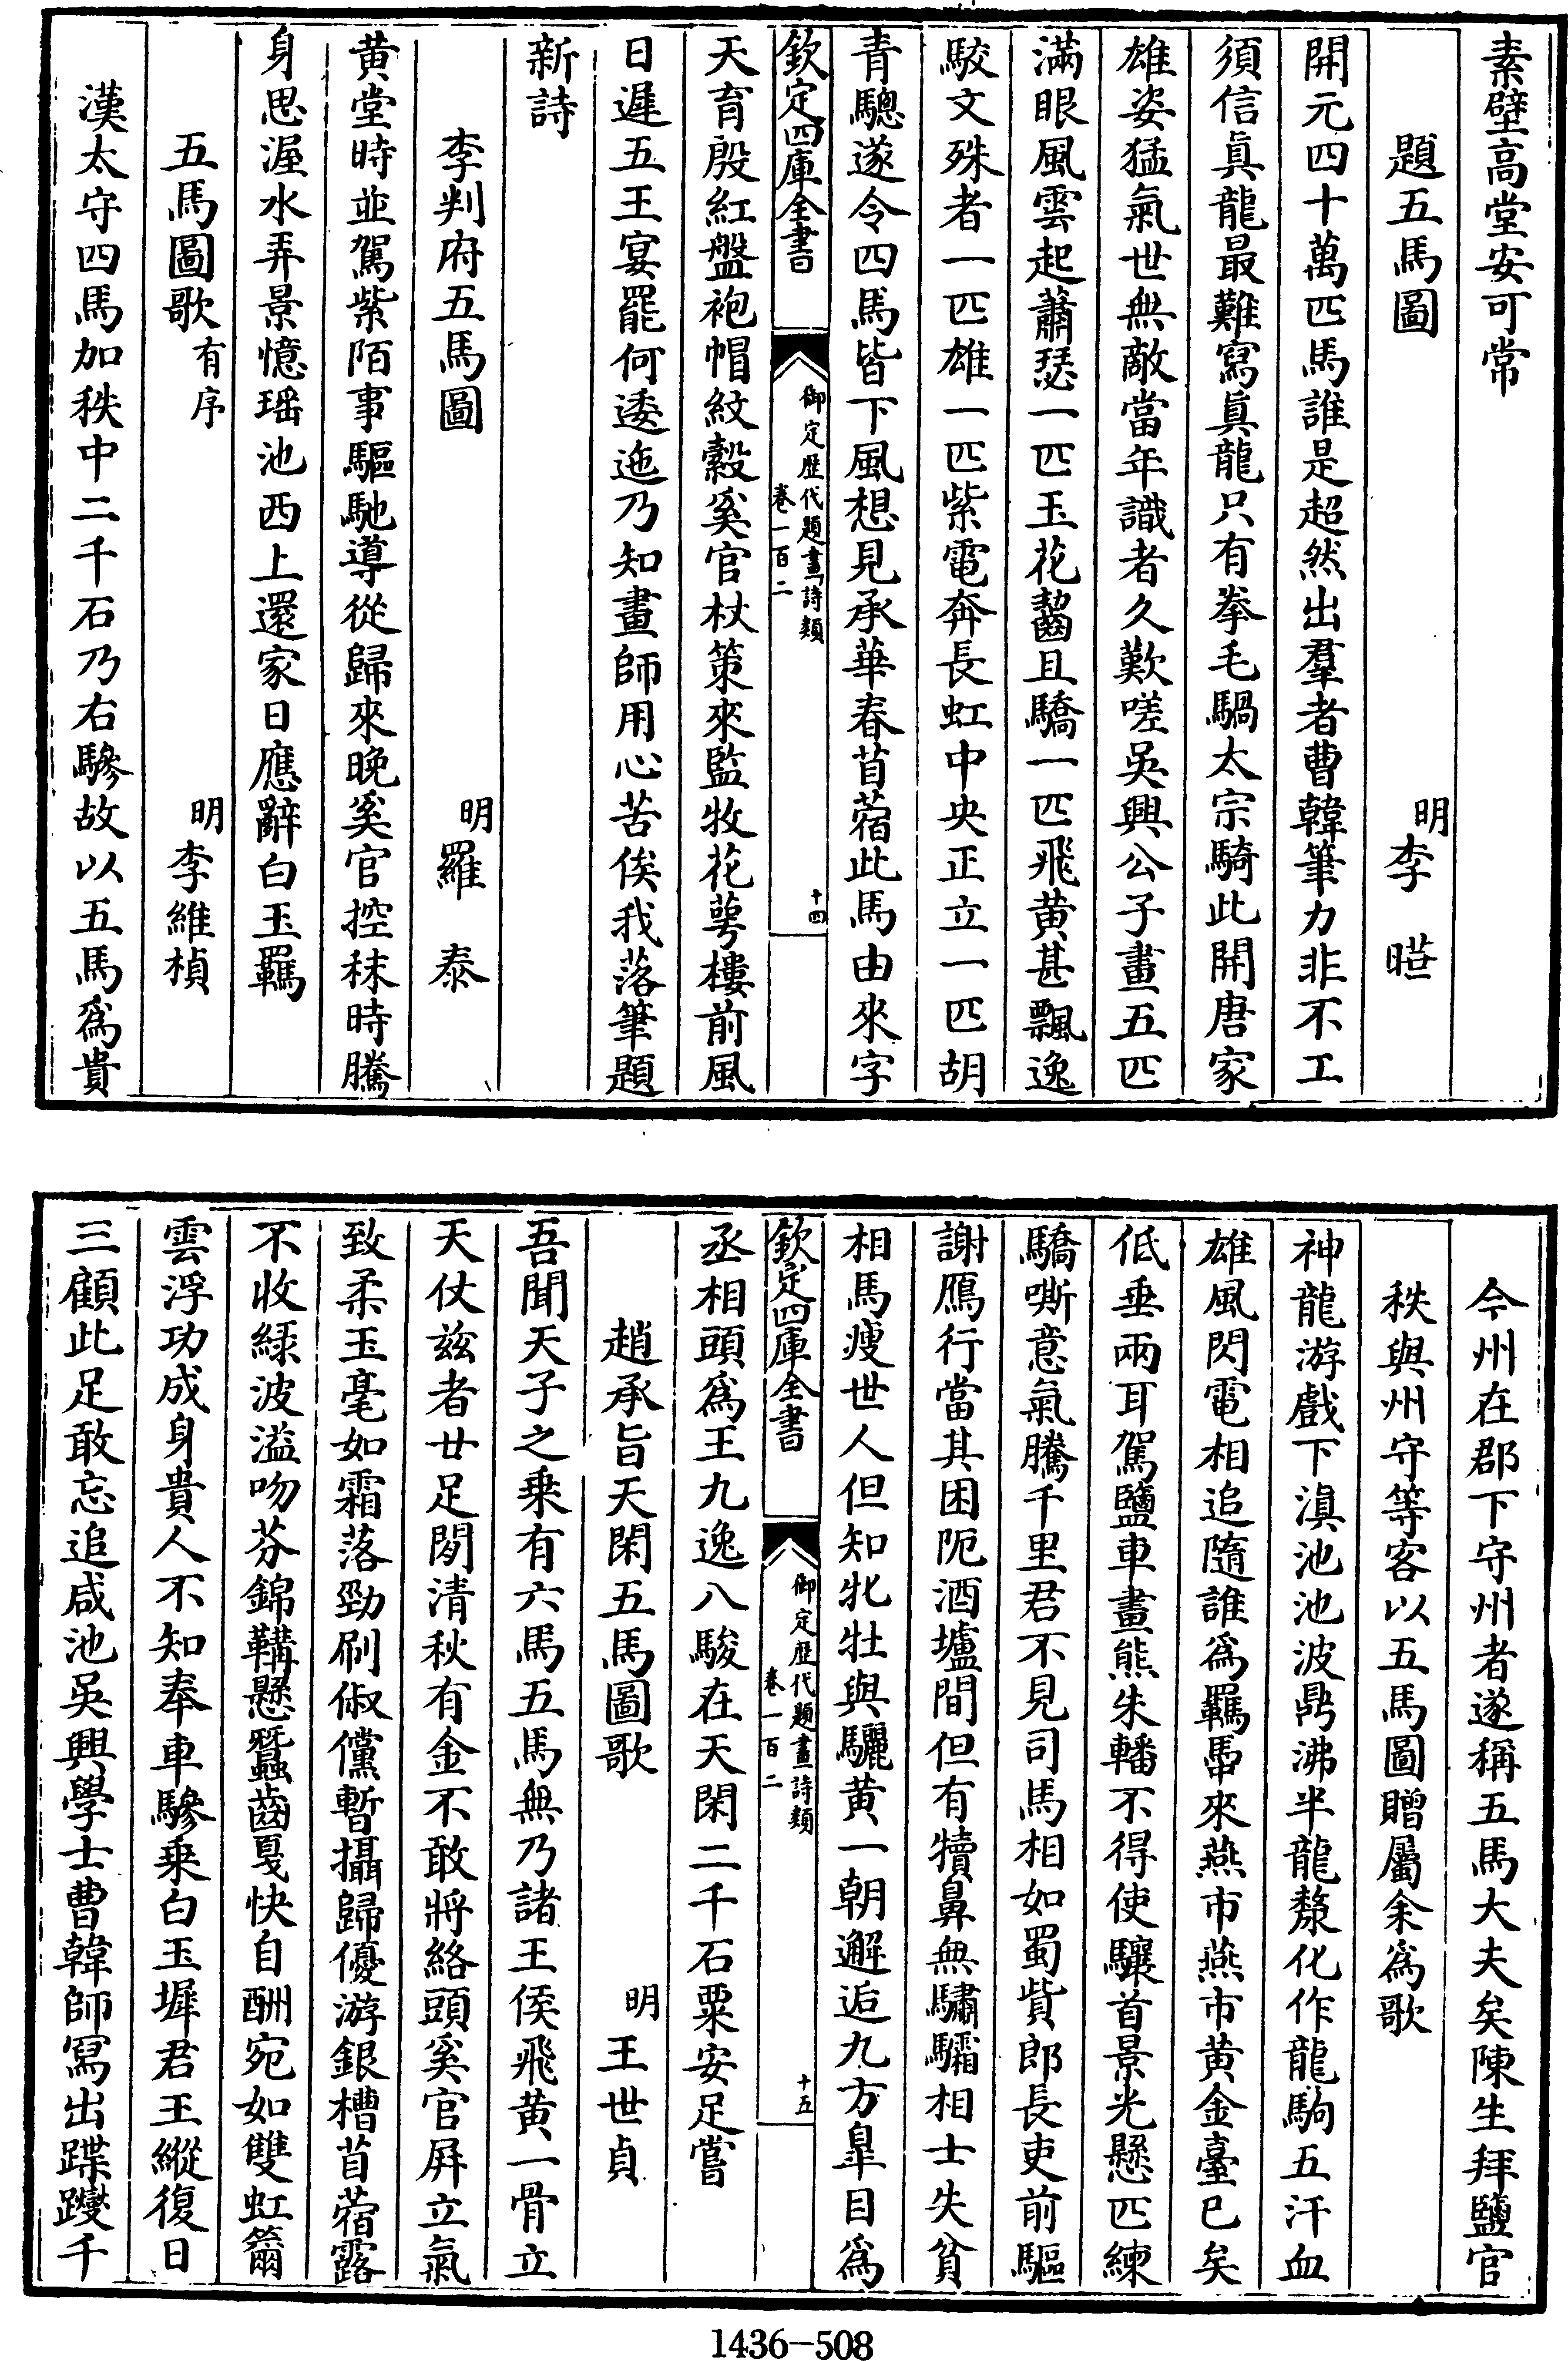 素壁高堂安可常
題五馬圖 明李 曔
開元四十萬匹馬誰是超然出羣者曹韓筆力非不工
須信眞龍最難寫眞龍只有拳毛騧太宗騎此開唐家
雄姿猛氣世無敵當年識者久歎嗟吳興公子畫五匹
滿眼風雲起蕭瑟一匹玉花齧且驕一匹飛黄甚飄逸
駮文殊者一匹雄一匹紫電奔長虹中央正立一匹胡
青驄遂令四馬皆下風想見承華春苜蓿此馬由來字
欽定四庫全書 御定歷代題畫詩類 卷一百二 十四
天育殷紅盤袍帽紋縠奚官杖策來監牧花萼樓前風
日遲五王宴罷何逶迤乃知畫師用心苦俟我落筆題
新詩
李判府五馬圖 明羅 泰
黄堂時並駕紫陌事驅馳導從歸來晚奚官控秣時騰
身思渥水弄景憶瑶池西上還家日應辭白玉羈
五馬圖歌有序 明李維楨
漢太守四馬加秩中二千石乃右驂故以五馬爲貴
今州在郡下守州者遂稱五馬大夫矣陳生拜鹽官
秩與州守等客以五馬圖贈屬余爲歌
神龍游戲下滇池池波鼎沸半龍漦化作龍駒五汗血
雄風閃電相追隨誰爲羈馽來燕市燕市黄金臺已矣
低垂兩耳駕鹽車畫熊朱轓不得使驤首景光懸匹練
驕嘶意氣騰千里君不見司馬相如蜀貲郎長吏前驅
謝鴈行當其困阨酒壚間但有犢鼻無驌驦相士失貧
相馬瘦世人但知牝牡與驪黄一朝邂逅九方臯目爲
欽定四庫全書 御定歷代題畫詩類 卷一百二 十五
丞相頭爲王九逸八駿在天閑二千石粟安足嘗
趙承旨天閑五馬圖歌 明王世貞
吾聞天子之乗有六馬五馬無乃諸王侯飛黄一骨立
天仗兹者廿足閱清秋有金不敢將絡頭奚官屏立氣
致柔玉毫如霜落勁刷俶儻暫攝歸優游銀槽苜蓿露
不收緑波溢吻芬錦鞲懸蠶齒戛快自酬宛如雙虹籋
雲浮功成身貴人不知奉車驂乗白玉墀君王縱復日
三顧此足敢忘追咸池吳興學士曹韓師寫出蹀躞千
1436-508